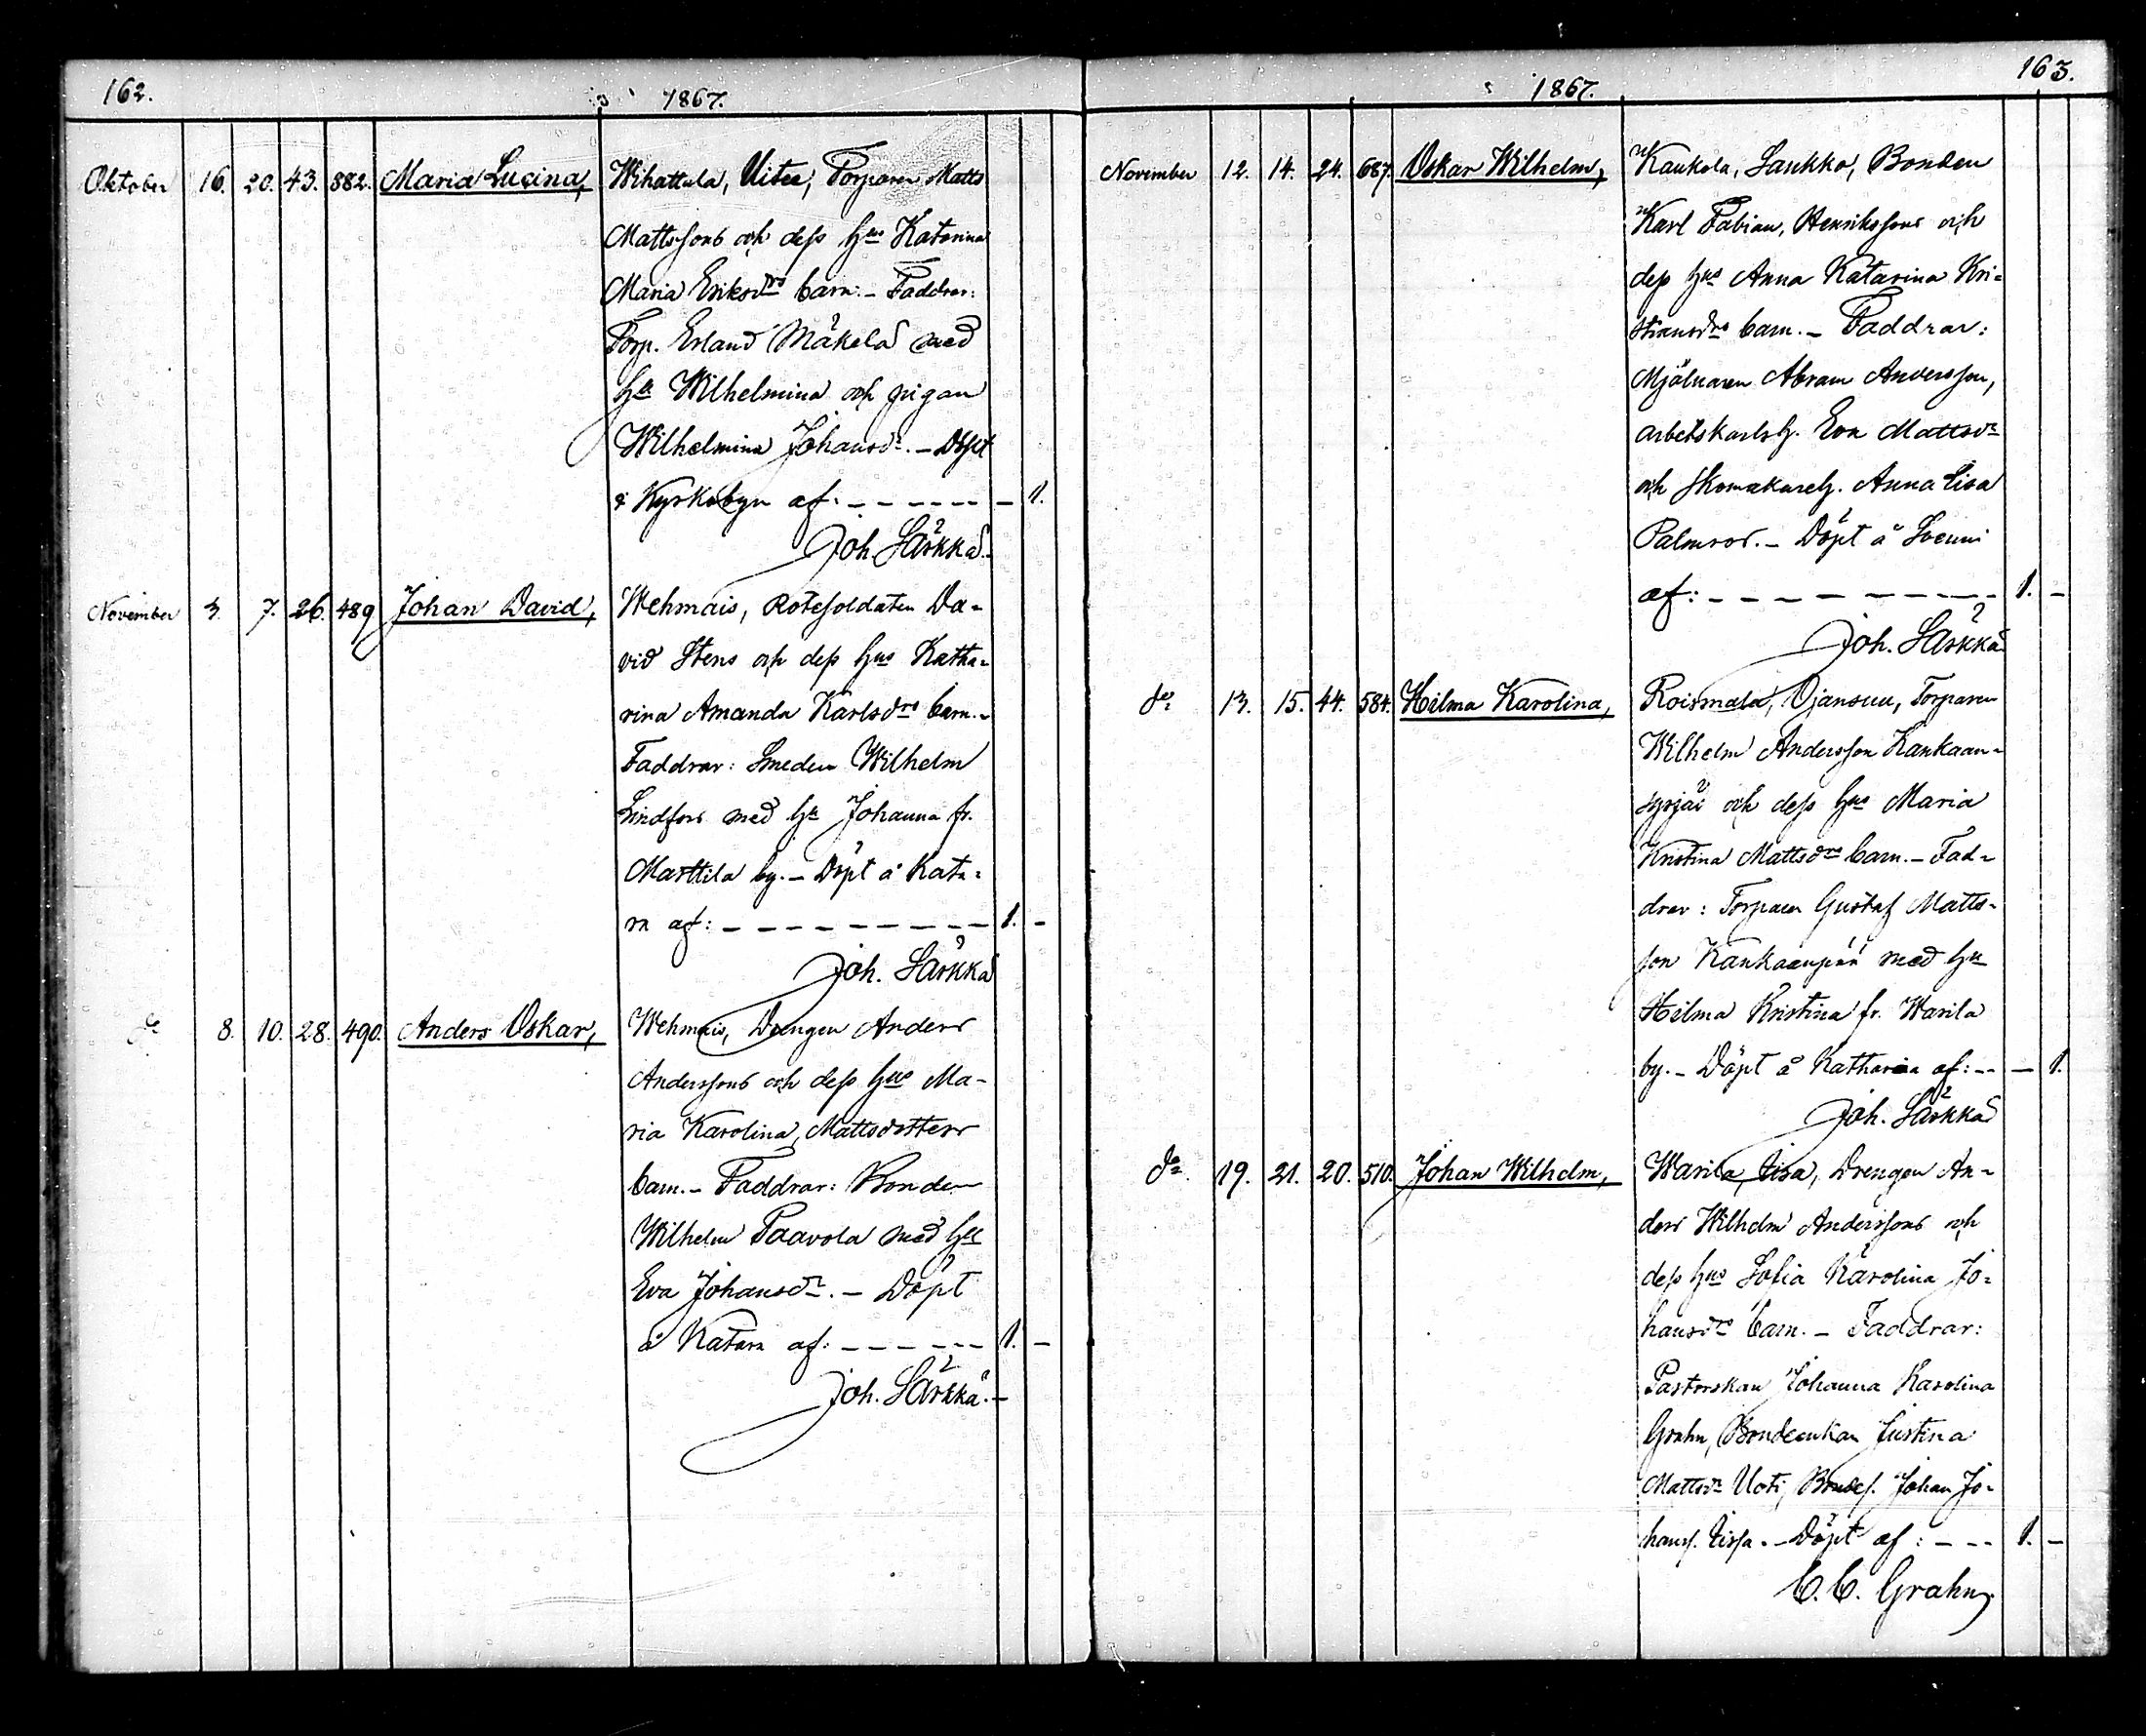 162.
1867.
Oktober 16. 20. 43. 882. Maria Lucina, Wihattula, Uitee, Torparen Matts
Mattssons och dess hus Katarina
Maria Eriksdrs barn. – Faddrar:
Torp. Erland Mäkelä med
hu Wilhelmina och pigan
Wilhelmina Johansdr. – Döpt
i Kyrkobyn af: – – – – – – 1.
Joh. Särkkä.
November 3. 7. 26. 489 Johan David, Wehmais, Rotesoldaten Da-
vid Stens och dess hus Katha-
rina Amanda Karlsdrs barn. –
Faddrar: Smeden Wilhelm
Lindfors med hu Johanna fr.
Marttila by. – Döpt å Kata-
ra af: – – – – – – – – – 1. –
Joh. Särkkä
do 8. 10. 28. 490. Anders Oskar, Wehmais, Drengen Anders
Anderssons och dess hus Ma-
ria Karolina Mattsdotters
barn. – Faddrar: Bonden
Wilhelm Paavola med hu
Eva Johansdr. – Döpt
å Katara af: – – – – – 1. –
Joh. Särkkä. –
163.
1867.
November 12. 14. 24. 687. Oskar Wilhelm, Kaukola, Laukko, Bonden
Karl Fabian Henrikssons och
dess hus Anna Katarina Kri-
stiansdrs barn. – Faddrar:
Mjölnaren Abram Andersson,
arbetskarlsh. Eva Mattsdr
och skomakareh. Anna Lisa
Palmros. – Döpt å
af: – – – – – – – – – 1. –
Joh. Särkkä
do 13. 15. 44. 584. Hilma Karolina, Roismala, Ojansuu, Torparen
Wilhelm Andersson Kankaan-
och dess hus Maria
Kristina Mattsdrs barn. – Fad-
drar: Torparen Gustaf Matts-
son Kankaanpää med hu
Hilma Kristina fr. Warila
by. – Döpt å Katharina af: – – – 1.
Joh. Särkkä
do. 19. 21. 20. 510. Johan Wilhelm, Warila, Tisa, Drengen An-
ders Wilhelm Anderssons och
dess hus Sofia Karolina Jo-
hansdrs barn. – Faddrar:
Pastorskan Johanna Karolina
Grahn, Bondeenkan Justina
Mattsdr Uoti, Bondes. Johan Jo-
hanss. Tissa. – Döpt af: – – – 1. –
C. C. Grahn